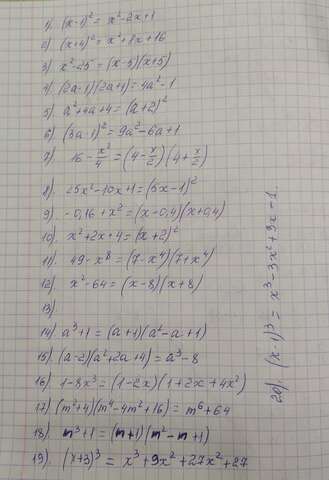 1) (x-1)² = x²-2x+1
2) (x+4)² = x²+8x+16
3) x²-25 = (x-5)(x+5)
4) (2a-1)(2a+1) = 4a²-1
5) a²+4a+4 = (a+2)²
6) (3a-1)² = 9a²-6a+1
7) 16 - x²/4 = (4 - x/2)(4 + x/2)
8) 25x²-10x+1 = (5x-1)²
9) -0,16+x² = (x-0,4)(x+0,4)
10) x²+2x+4 = (x+2)²
11) 49-x⁸ = (7-x⁴)(7+x⁴)
12) x²-64 = (x-8)(x+8)
13)
14) a³+1 = (a+1)(a²-a+1)
15) (a-2)(a²+2a+4) = a³-8
16) 1-8x³ = (1-2x)(1+2x+4x²)
17) (m²+4)(m⁴-4m²+16) = m⁶+64
18) m³+1 = (m+1)(m²-m+1)
19) (x+3)³ = x³+9x²+27x²+27
20) (x-1)³ = x³-3x²+3x-1